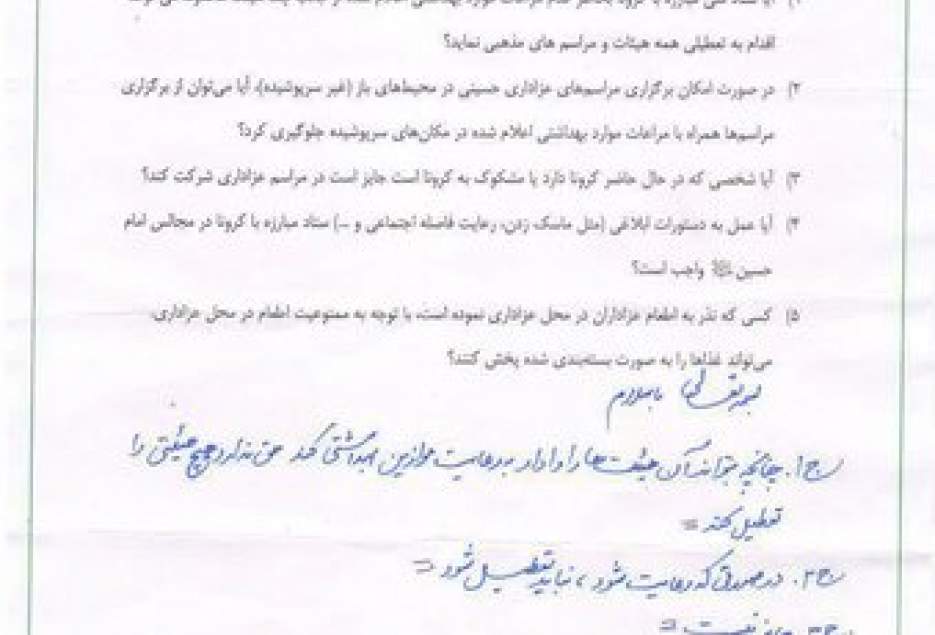 ۱) آیا ستاد ملی مبارزه با کرونا بخاطر عدم مراعات موارد بهداشتی اعلام شده از
اقدام به تعطیلی همه هیئات و مراسم های مذهبی نماید؟
۲) در صورت امکان برگزاری مراسم‌های عزاداری حسینی در محیط‌های باز (غیر سرپوشیده)، آیا می‌توان از برگزاری
مراسم‌ها همراه با مراعات موارد بهداشتی اعلام شده در مکان‌های سرپوشیده جلوگیری کرد؟
۳) آیا شخصی که در حال حاضر کرونا دارد یا مشکوک به کرونا است جایز است در مراسم عزاداری شرکت کند؟
۴) آیا عمل به دستورات ابلاغی (مثل ماسک زدن، رعایت فاصله اجتماعی و ...) ستاد مبارزه با کرونا در مجالس امام
حسین واجب است؟
۵) کسی که نذر به اطعام عزاداران در محل عزاداری نموده است، با توجه به ممنوعیت اطعام در محل عزاداری،
می‌تواند غذاها را به صورت بسته‌بندی شده پخش کنند؟
بسمه تعالی باسلام
ج۱. چنانچه بتواند آن هیئت‌ها را وادار به رعایت موازین بهداشتی کند حق ندارد هیچ هیئتی را
تعطیل کند
ج۲. در صورتی که رعایت شود، نباید تعطیل شود
ج۳. جایز نیست